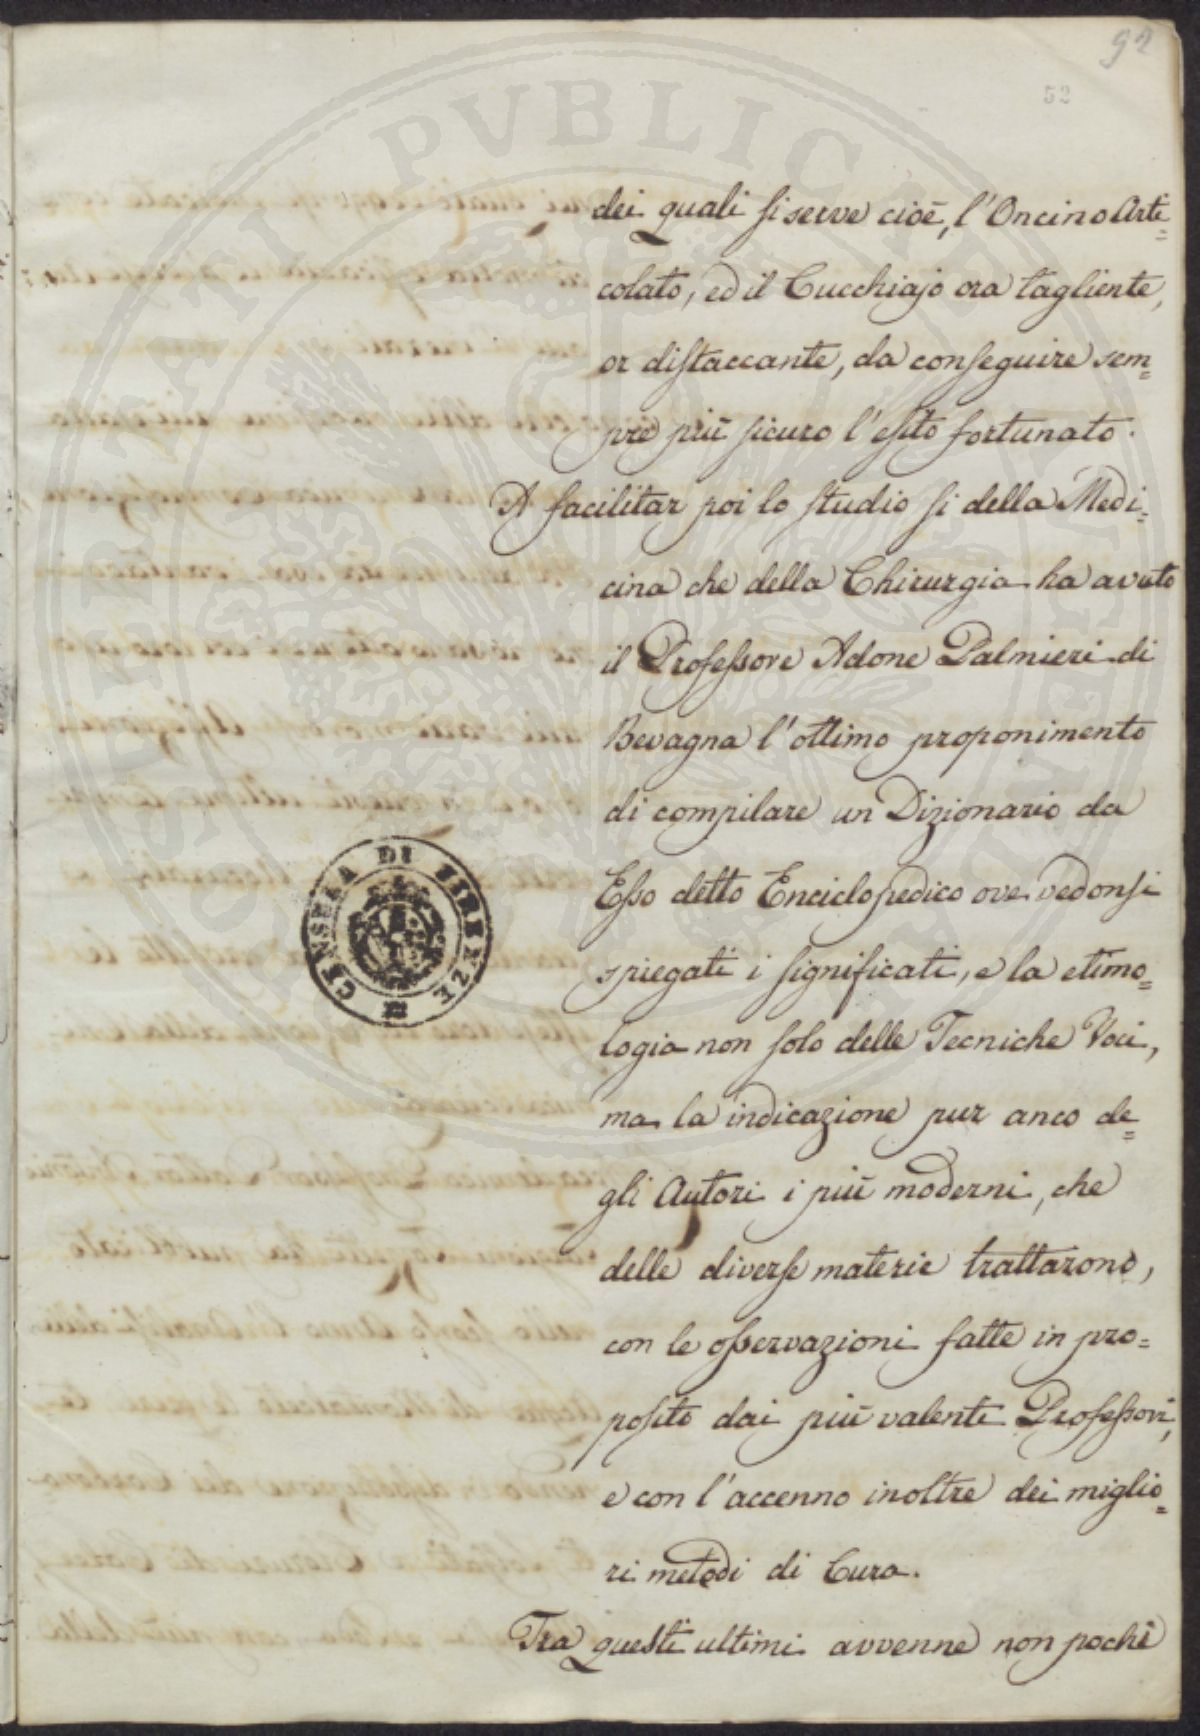 92
52
dei quali si serve cioè, l'Oncino Arti=
colato, ed il Cucchiajo ora tagliente,
or distaccante, da conseguire sem=
pre più sicuro l'esito fortunato.
A facilitar poi lo studio si della Medi=
cina che della Chirurgia ha avuto
il Professore Adone Palmieri di
Bevagna l'ottimo proponimento
di compilare un Dizionario da
Esso detto Enciclopedico ove vedonsi
spiegati i significati, e la etimo=
logia non solo delle Tecniche Voci,
ma la indicazione pur anco de=
gli Autori i più moderni, che
delle diverse materie trattarono,
con le osservazioni fatte in pro=
posito dai più valenti Professori,
e con l'accenno inoltre dei miglio=
ri metodi di Cura.
Tra questi ultimi avvenne non pochi
CENSURA DI FIRENZE